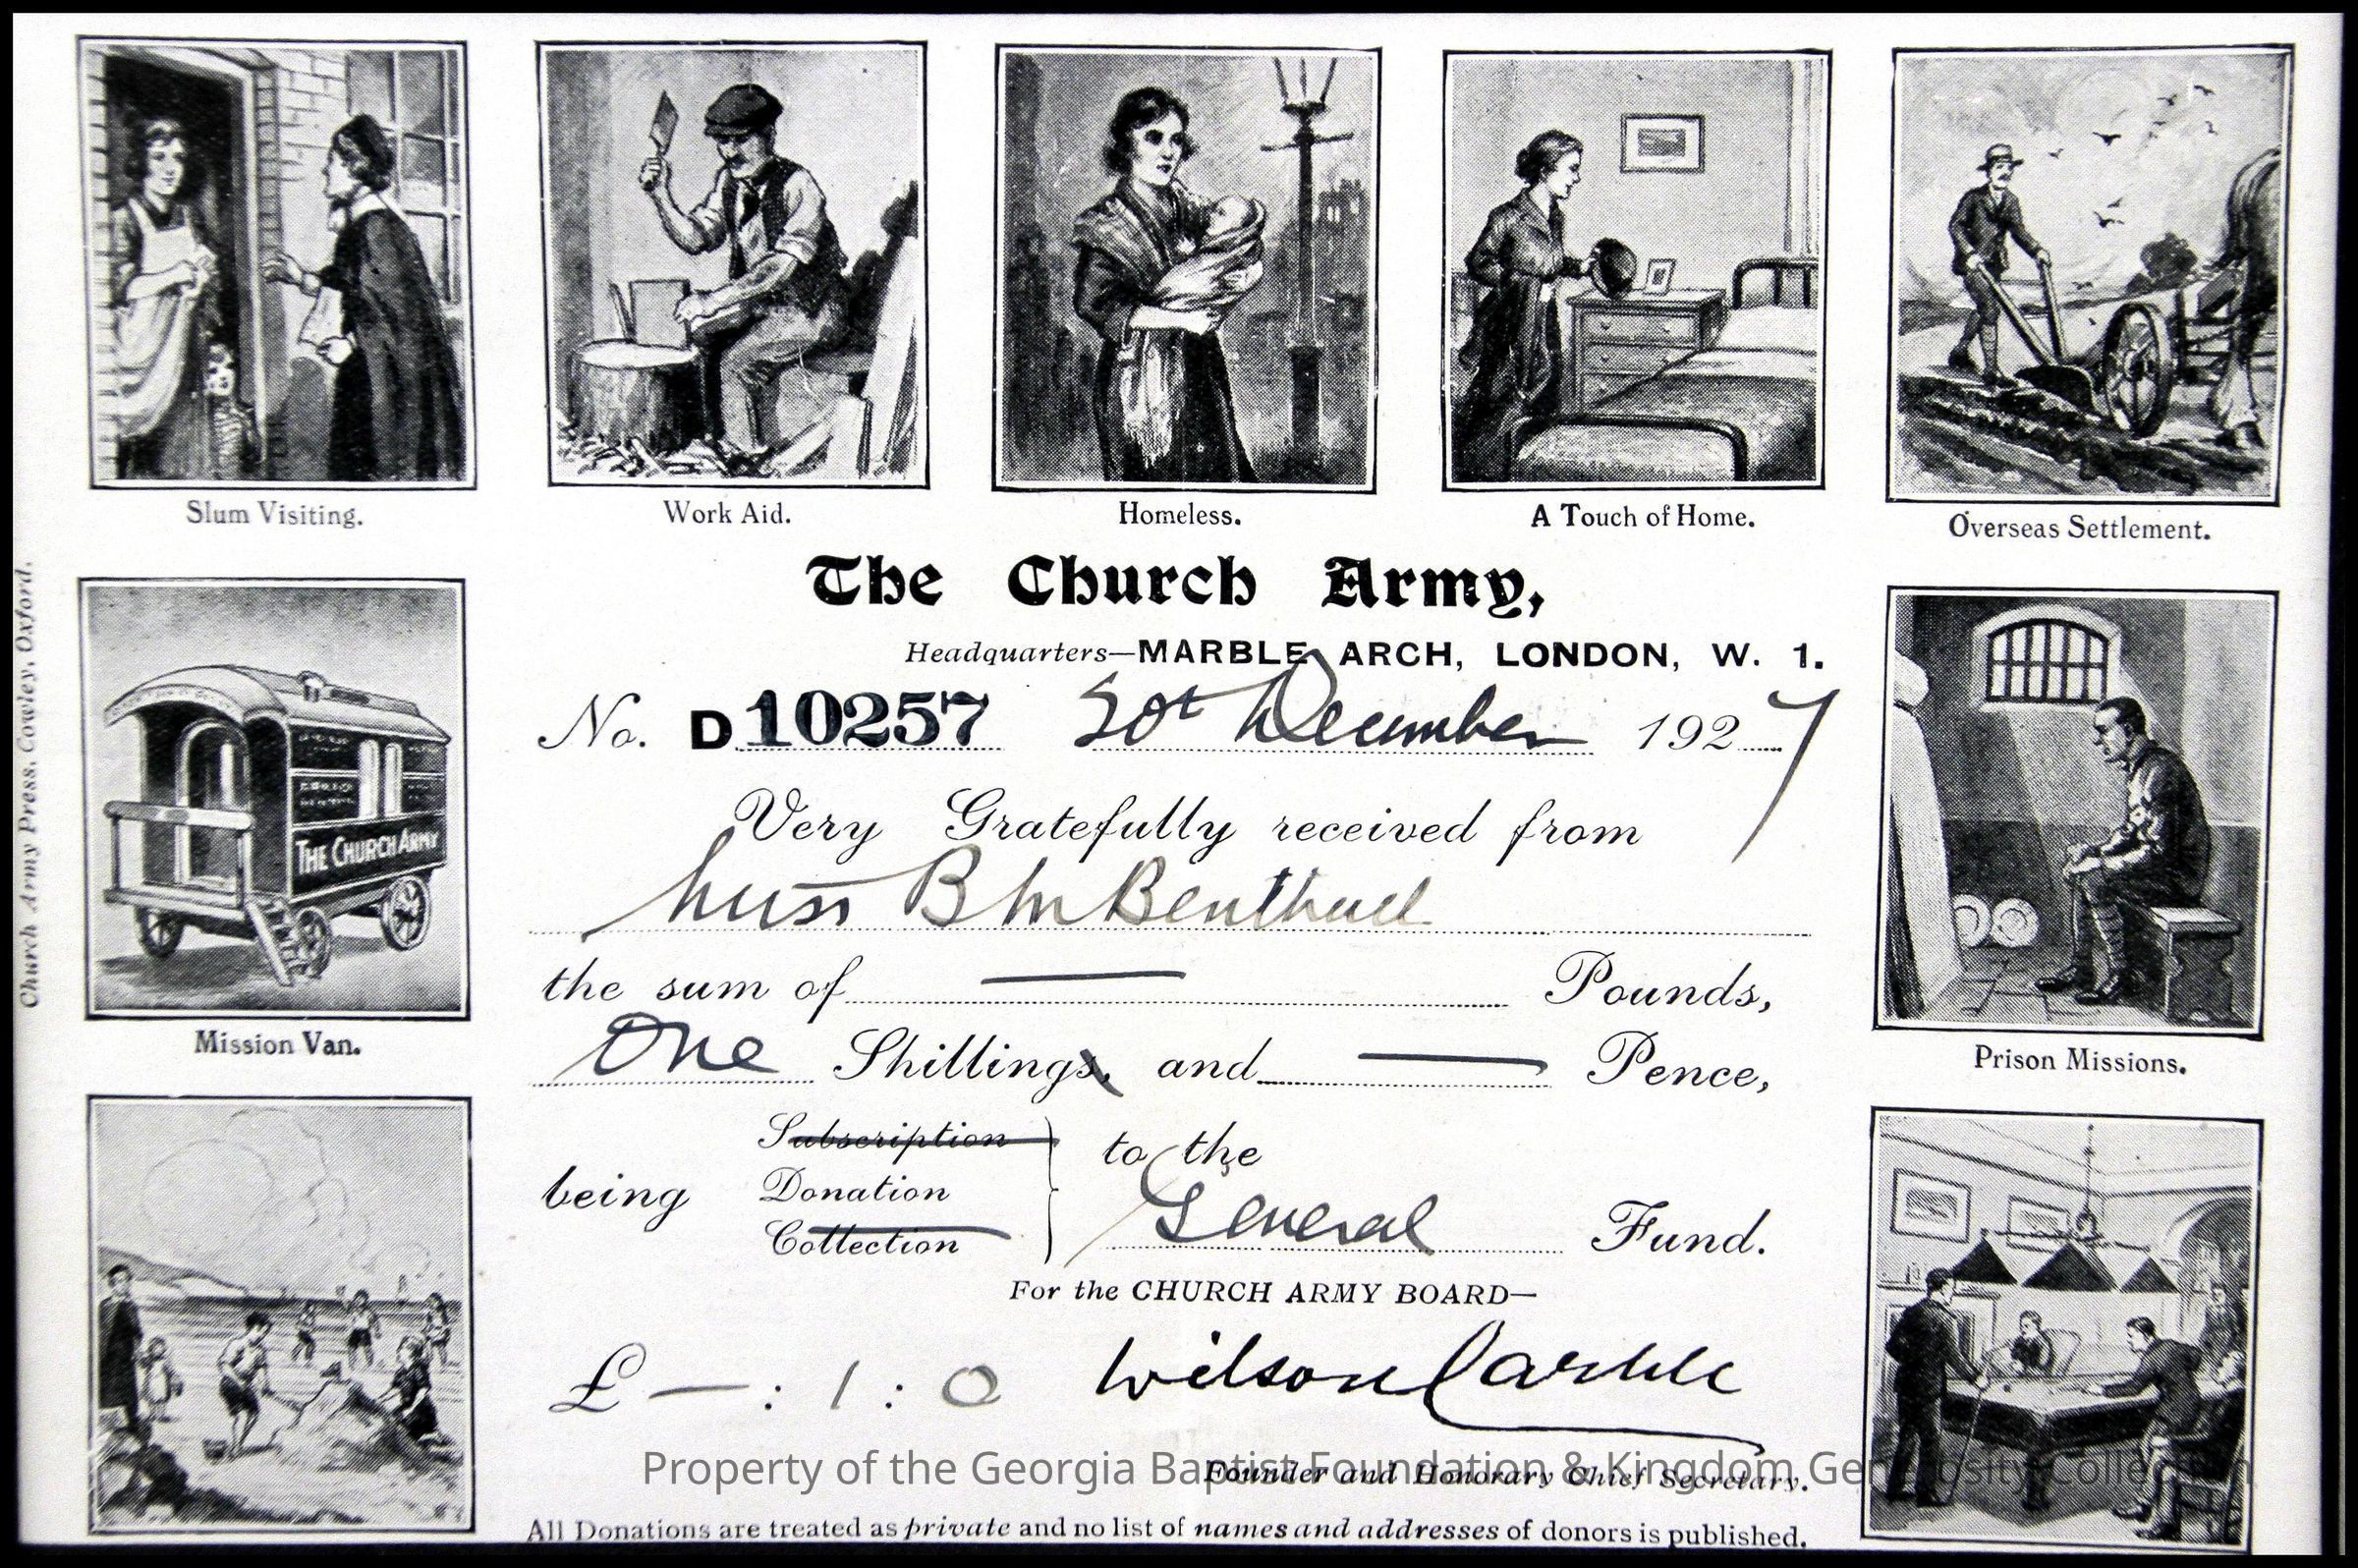 Slum Visiting.
Work Aid.
Homeless.
A Touch of Home.
Overseas Settlement.
The Church Army,
Headquarters—MARBLE ARCH, LONDON, W. 1.
No. D 10257 December 1927
Very Gratefully received from
Miss B M Benthall
the sum of — Pounds,
One Shillings, and — Pence,
being Subscription
Donation
Collection
to the
General Fund.
For the CHURCH ARMY BOARD—
£ — : 1 : 0 Wilson Carlile
Founder and Honorary Chief Secretary.
All Donations are treated as private and no list of names and addresses of donors is published.
Church Army Press, Cowley, Oxford.
THE CHURCH ARMY
Mission Van.
Prison Missions.
Property of the Georgia Baptist Foundation & Kingdom Generosity Collection